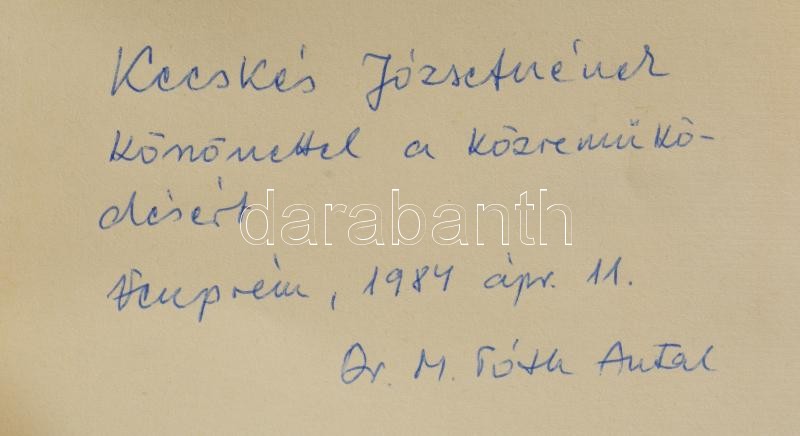 Kecskés Józsefnének
köszönettel a közreműkö-
désért
darabanth
Veszprém, 1984 ápr. 11.
Dr. M. Tóth Antal